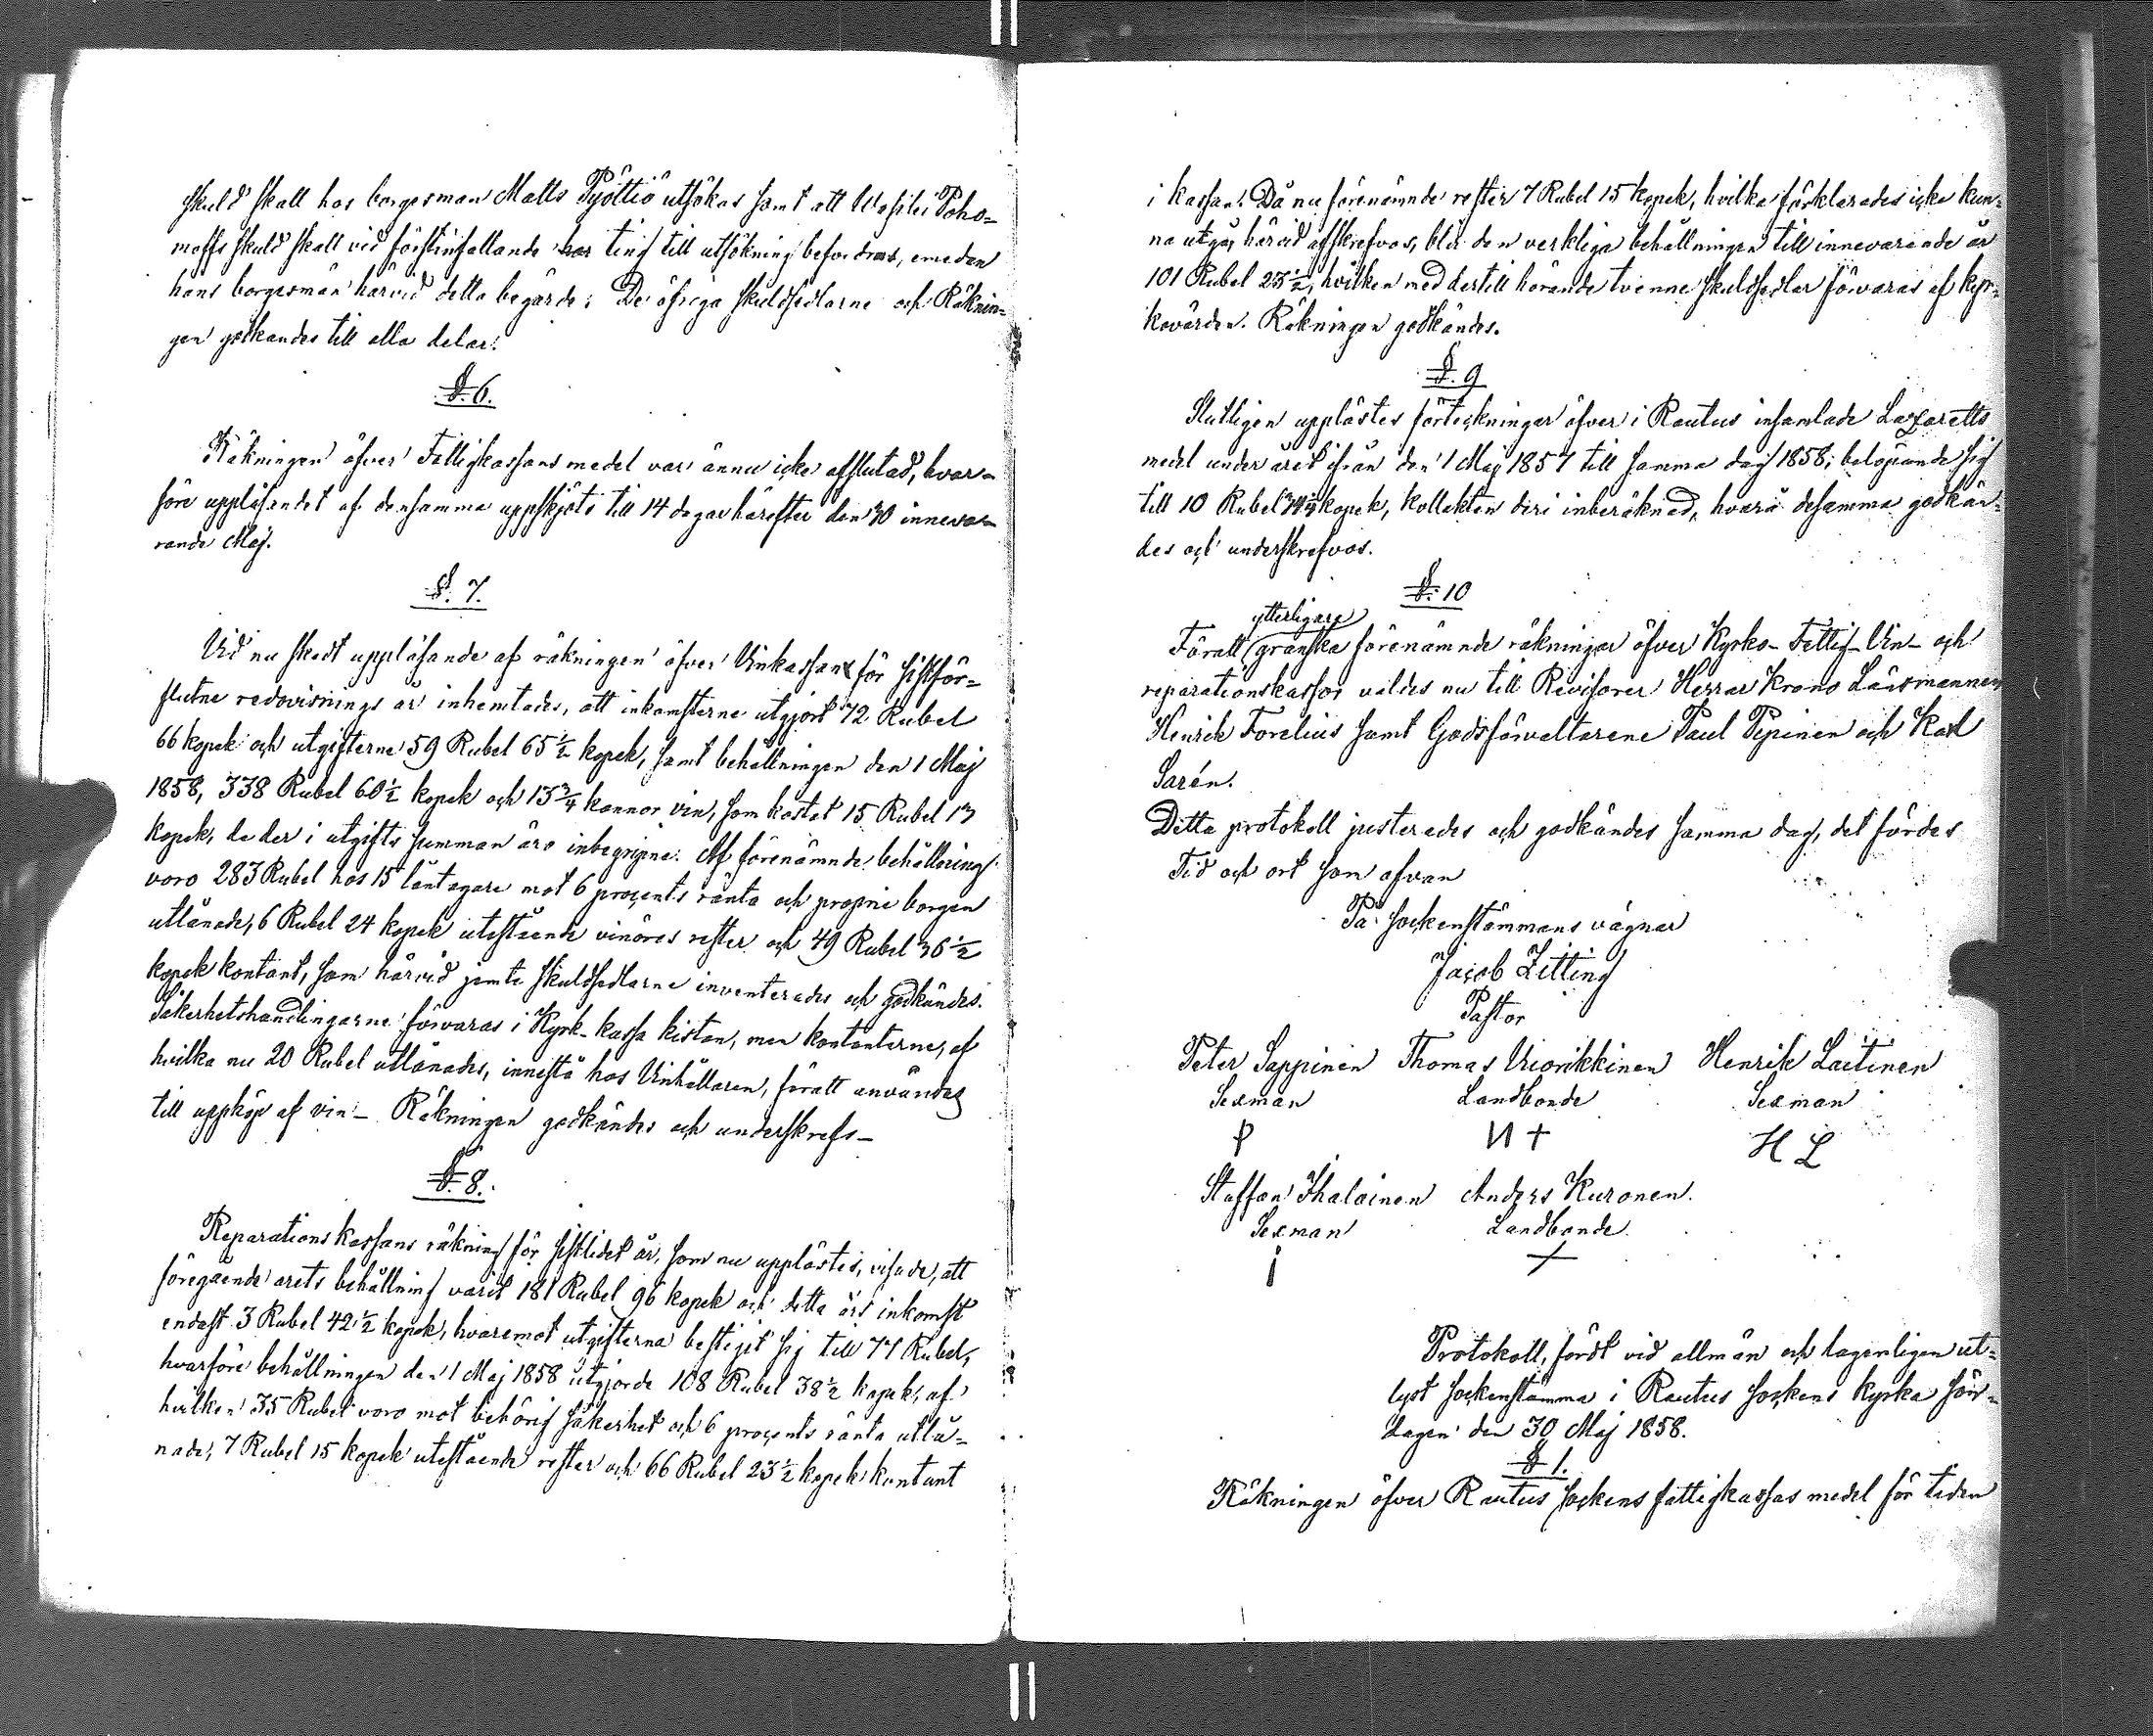 skuld skall hos borgesman Matts Pyöttiö utsökas samt att Wasilei Poho=
moffs skuld skall vid förstinfallande ting till utsökning befordras, emedan
hans borgesmän härvid detta begärde. De öfriga skuldsedlarne och Räknin=
gen godkändes till alla delar.
§. 6.
Räkningen öfver Fattigkassans medel var ännu icke afslutad, hvar=
före uppläsandet af densamma uppskjöts till 14 dagar härefter den 30 inneva=
rande Maj.
§. 7.
Vid nu skedt uppläsande af räkningen öfver Vinkassan för sistför=
flutne redovisnings år inhemtades, att inkomsterne utgjort 72 Rubel
66 kopek och utgifterne 59 Rubel 65 1/2 kopek, samt behållningen den 1 Maj
1858, 338 Rubel 60 1/2 kopek och 13 3/4 kannor vin, som kostat 15 Rubel 13
kopek, de der i utgifts summan äro inbegripne. Af förenämnde behållning
voro 283 Rubel hos 15 låntagare mot 6 procents ränta och proprie borgen
utlånade, 6 Rubel 24 kopek utestående vinöres rester och 49 Rubel 36 1/2
kopek kontant, som härvid jemte skuldsedlarne inventerades och godkändes.
Säkerhetshandlingarne förvaras i Kyrk-kassa kistan, men kontanterne, af
hvilka nu 20 Rubel utlånades, innestå hos Vinhållaren, föratt användas
till uppköp af vin – Räkningen godkändes och underskrefs –
§. 8.
Reparationskassans räkning för sistlidet år, som nu upplästes, visade, att
föregående årets behållning varit 181 Rubel 96 kopek och detta års inkomst
endast 3 Rubel 42 1/2 kopek, hvaremot utgifterna bestiget sig till 77 Rubel,
hvarföre behållningen den 1 Maj 1858 utgjorde 108 Rubel 38 1/2 kopek, af
hvilken 35 Rubel voro mot behörig säkerhet och 6 procents ränta utlå=
nade, 7 Rubel 15 kopek utestående rester och 66 Rubel 23 1/2 kopek kontant
i kassan. Då nu förenämnde rester 7 Rubel 15 kopek, hvilka förklarades icke kun=
na utgå, härvid afskrefvos, blir den verkliga behållningen till innevarande år
101 Rubel 23 1/2, hvilken med dertill hörande tvenne skuldsedlar förvaras af kyr=
kovärden. Räkningen godkändes.
§. 9
Slutligen upplästes förteckningar öfver i Rautus insamlade Lazaretts
medel under året ifrån den 1 Maj 1857 till samma dag 1858, belöpande sig
till 10 Rubel kopek, kollekten deri inberäknad, hvarå desamma godkän=
des och underskrefvos.
§. 10
ytterligare
Föratt granska förenämnde räkningar öfver Kyrko- Fattig- Vin- och
reparationskassor valdes nu till Revisorer Herrar Krono Länsmannen
Henrik Forelius samt Godsförvaltarene Paul Pepinen och Karl
Sarén.
Detta protokoll justerades och godkändes samma dag, det fördes
Tid och ort som ofvan
På sockenstämmans vägnar
Jacob Zitting
Pastor
Peter Sappinen Thomas Vuorikkinen Henrik Laitinen
Sexman Landbonde Sexman
P И + H L
Staffan Ihalainen Anders Kuronen.
Sexman Landbonde.
+
Protokoll, fördt vid allmän och lagenligen ut=
lyst sockenstämma i Rautus sockens kyrka sön=
dagen den 30 Maj 1858.
§ 1.
Räkningen öfver Rautus sockens fattigkassas medel för tiden